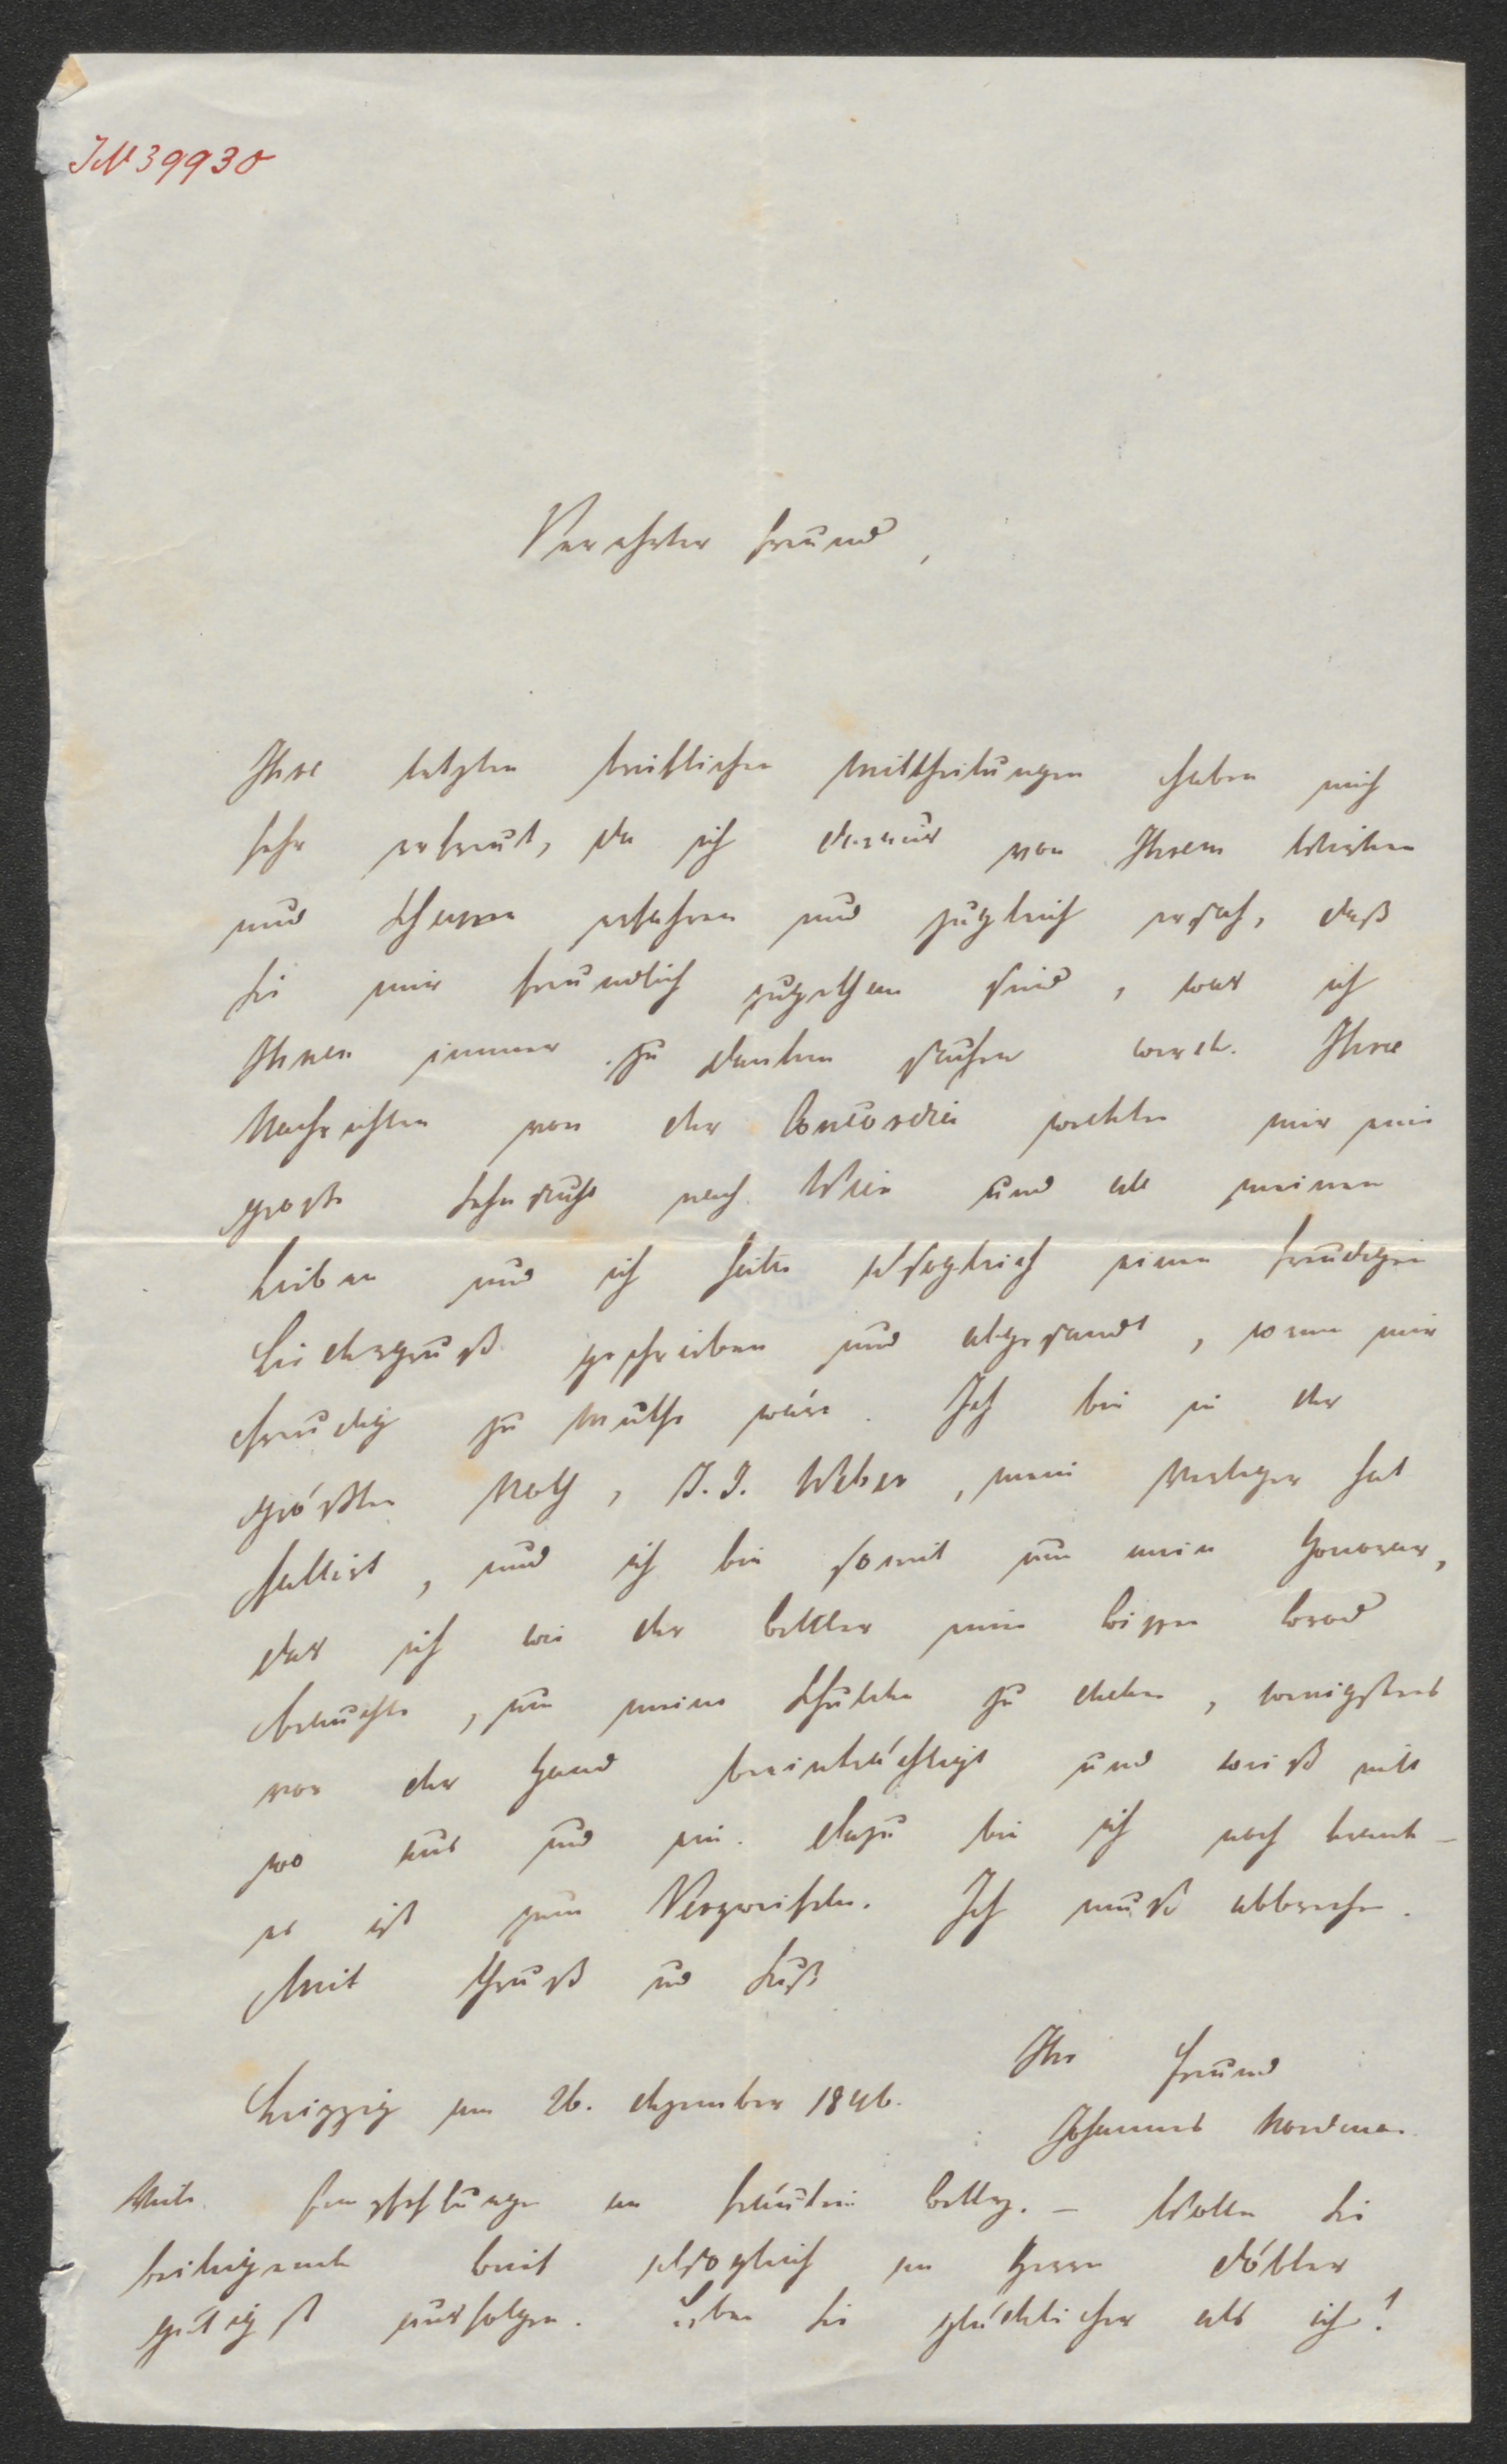 IN 39930
Verehrter Freund,
Ihre letzten brieflichen Mittheilungen haben mich
sehr erfreut, da ich daraus von Ihrem Wirken
und Schaffen erfahren und zugleich ersah, daß
Sie mir freundlich zugethan sind, was ich
Ihnen immer zu danken suchen werde. Ihre
Nachrichten von der Concordia weckten mir eine
große Sehnsucht nach Wien und all meinen
Lieben und ich hätte sogleich einen freudigen
Liedergruß geschrieben und abgesandt, wenn mir
freudig zu Muthe wäre. Ich bin in der
größten Noth, J. J. Weber, mein Verleger hat
fallirt, und ich bin somit um mein Honorar,
das ich wie der Bettler seinen Bissen Brod
brauchte, um meine Schulden zu decken, wenigstens
vor der Hand beeinträchtigt und weiß nicht
wo aus und ein. Dazu bin ich noch krank –
es ist zum Verzweifeln. Ich muß abbrechen.
Mit Gruß und Kuß
Ihr Freund
Leipzig am 26. Dezember 1846.
Johannes Nordman.
Viele Empfehlungen an Fräulein Betty. – Wollen Sie
beiliegenden Brief sogleich an Herrn Döbler
gütigst ausfolgen. Leben Sie glücklicher als ich!